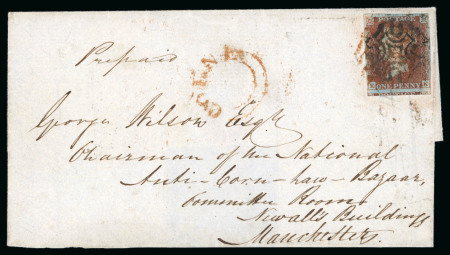 POSTAGE
ONE PENNY
Prepaid
George Wilson Esq
Chairman of the National
Anti-Corn-Law-Bazaar,
Committee Room
Newall's Buildings
Manchester.